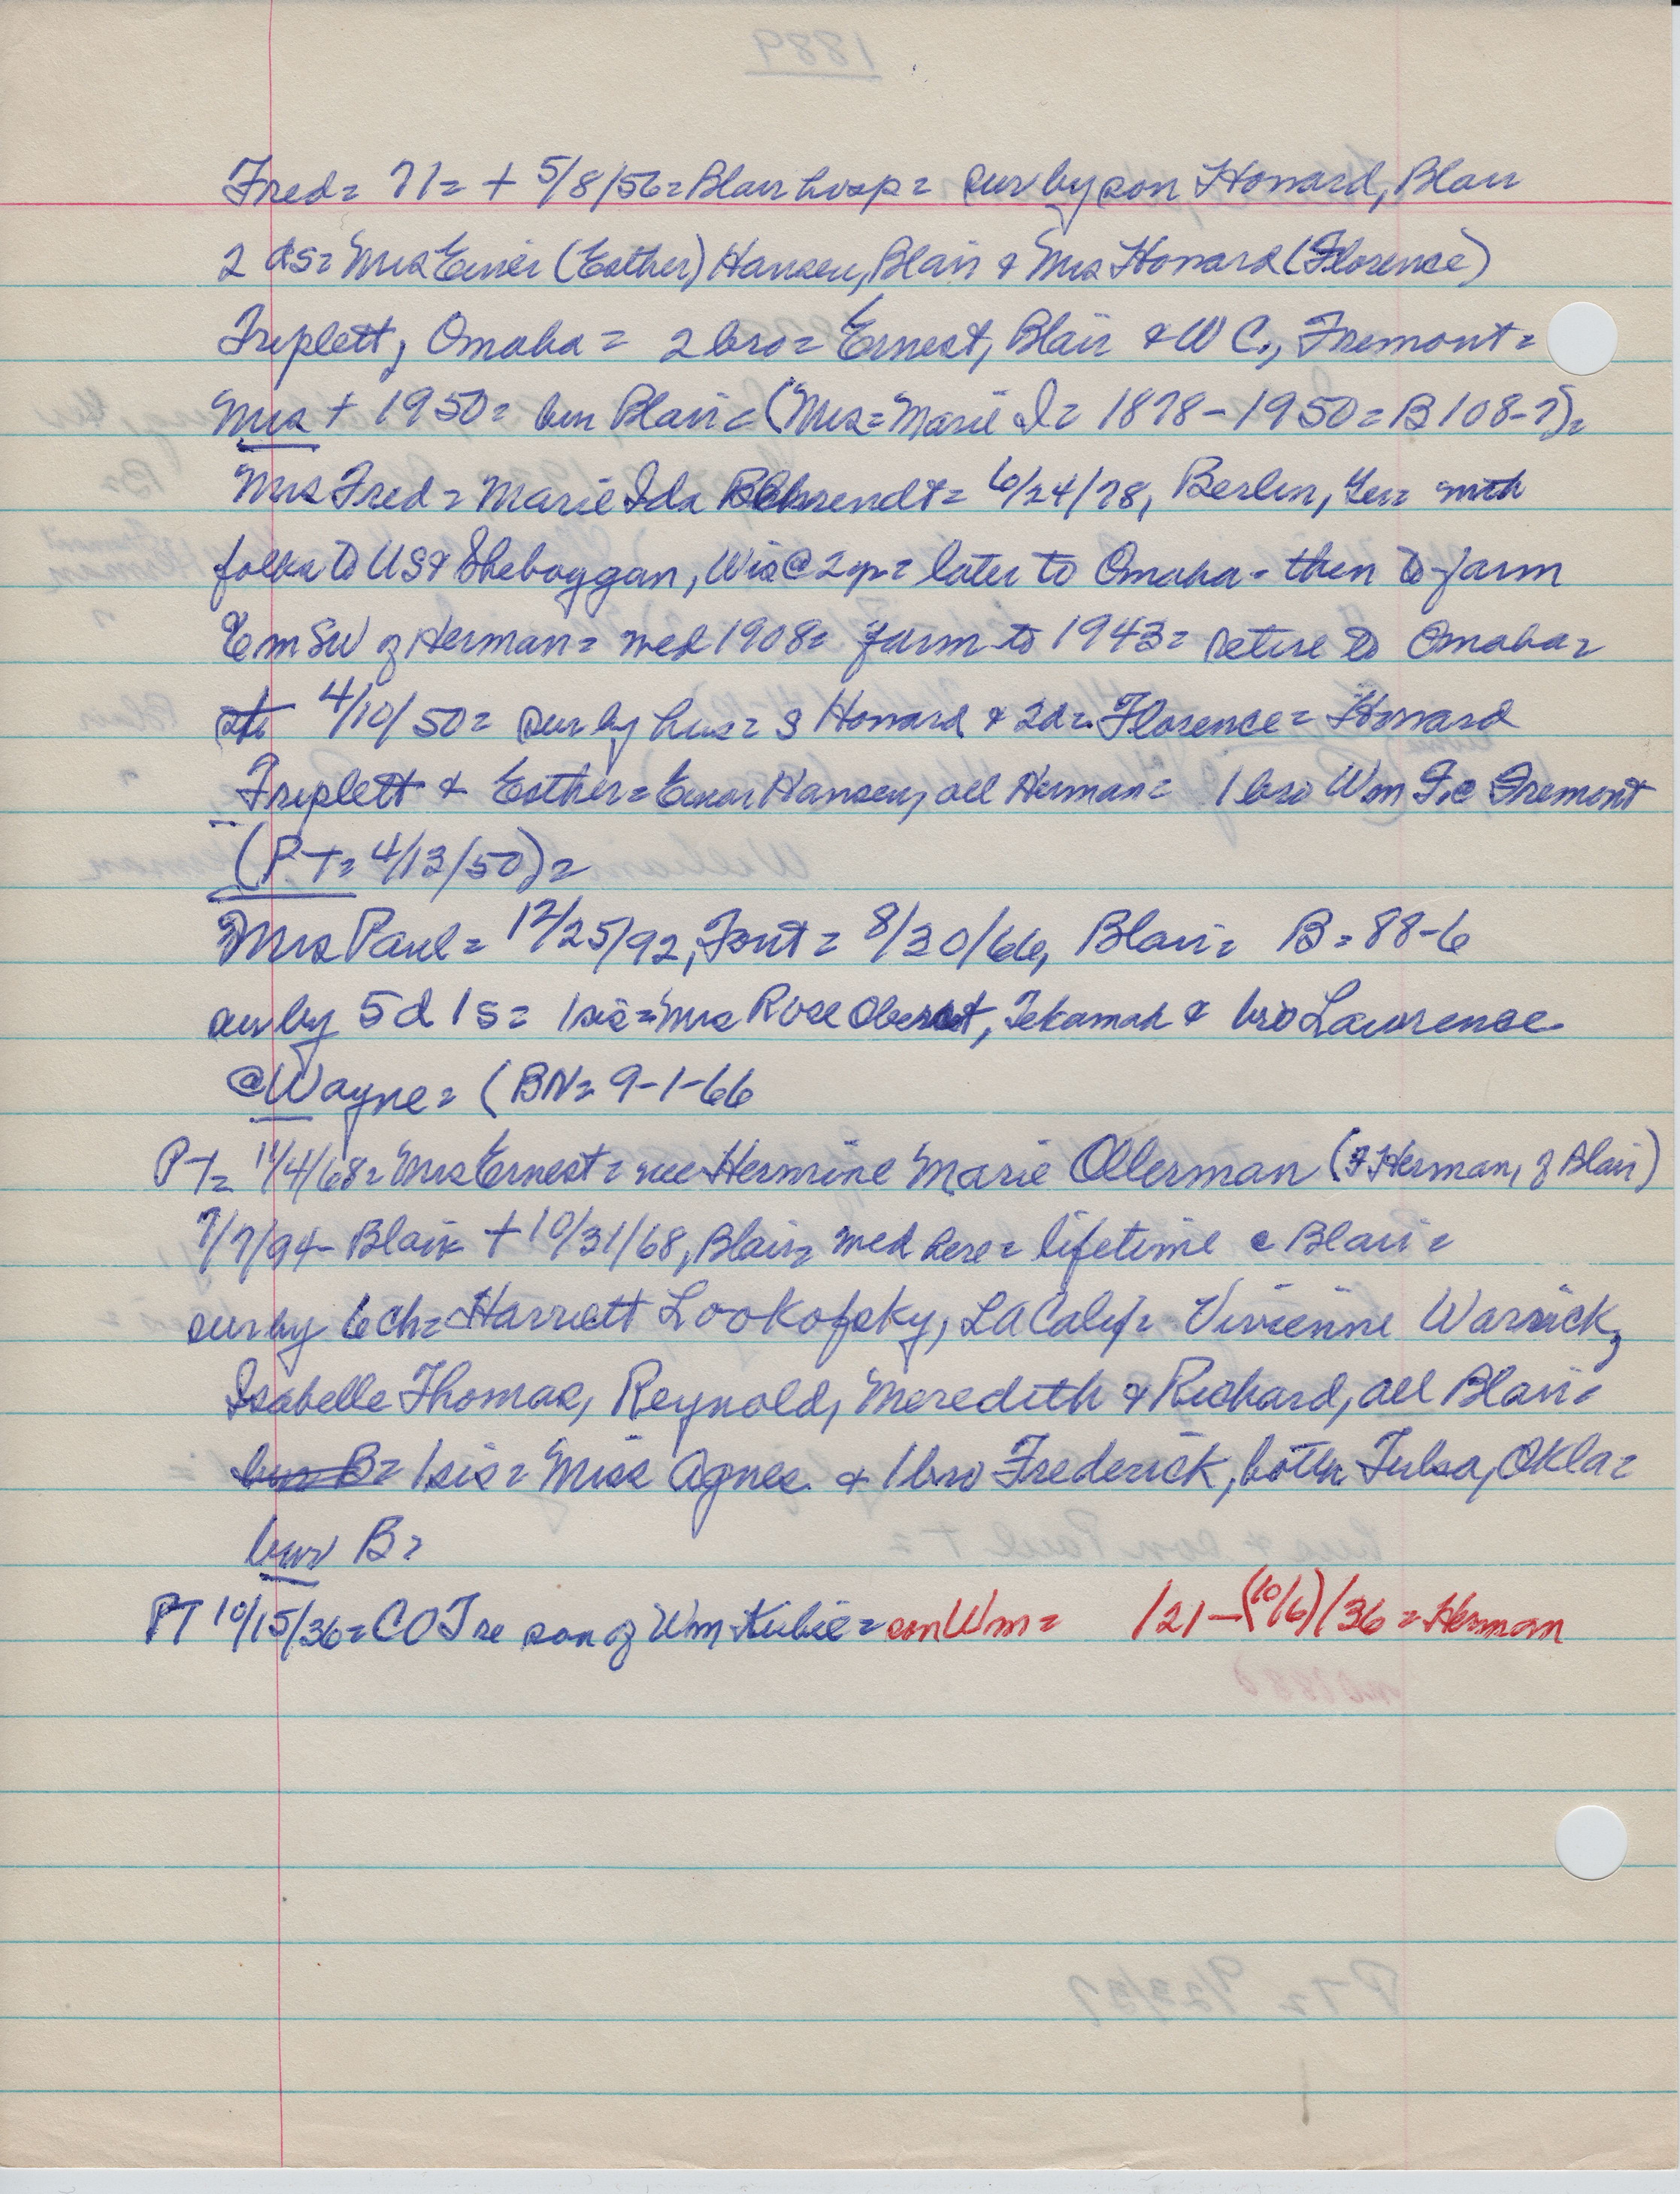 Fred = 71 = + 5/8/56 = Blair hosp = sur by son Howard, Blair
2 ds = Mrs Einer (Esther) Hansen, Blair & Mrs Howard (Florence)
Triplett, Omaha = 2 bro = Ernest, Blair & W C., Fremont =
Mrs + 1950 = bur Blair = (Mrs = Marie I = 1878 - 1950 = B 108-7) =
Mrs Fred = Marie Ida Behrendt = 6/24/78, Berlin, Ger = with
folks to US & Sheboygan, Wis @ 2 yr = later to Omaha - then to farm
6 m SW of Herman = wed 1908 = farm to 1943 = retire to Omaha =
4/10/50 = sur by hus = s Howard & 2 d = Florence = Howard
Triplett & Esther = Einar Hansen, all Herman = 1 bro Wm F. @ Fremont
(PT = 4/13/50) =
Mrs Paul = 12/25/92, Font = 8/30/66, Blair = B = 88-6
sur by 5 d 1 s = 1 sis = Mrs Rose Oberst, Tekamah & bro Lawrence
@ Wayne = (BN = 9-1-66
PT = 11/4/68 = Mrs Ernest = nee Hermine Marie Ollerman (F Herman, of Blair)
7/7/94 - Blair + 10/31/68, Blair = wed here = lifetime @ Blair =
sur by 6 ch = Harriett Lookofsky, LA Calif = Vivienne Warrick,
Isabelle Thomas, Reynold, Meredith & Richard, all Blair =
bur B = 1 sis = Miss Agnes & 1 bro Frederick, both Tulsa, Okla =
bur B =
PT 10/15/36 = CO T re son of Wm Kubie = son Wm = /21 - (10/6)/36 = Herman